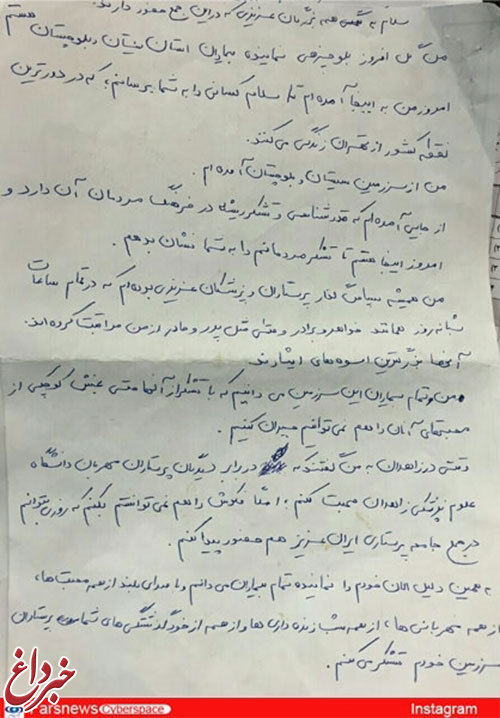 سلام به همه عزیزانی که در این جمع حضور دارند.
من گل افروز بلوچزهی نماینده بیماران استان سیستان و بلوچستان هستم
امروز من به اینجا آمده ام تا سلام کسانی را به شما برسانم؛ که در دورترین
نقطه کشور از تهران زندگی می کنند.
من از سرزمین سیستان و بلوچستان آمده ام.
از جایی آمده ام که قدرشناسی و تشکر ریشه در فرهنگ مردمان آن دارد و
امروز اینجا هستم تا تشکر مردمانم را به شما نشان بدهم.
من همیشه سپاس گذار پرستاران و پزشکان عزیزی بوده ام که در تمام ساعات
شبانه روز همانند خواهر و برادر و حتی مثل پدر و مادر از من مراقبت کرده اند.
آنها بزرگترین اسوه های ایثارند.
من و تمام بیماران این سرزمین می دانیم که با تشکر از آنها حتی بخش کوچکی از
محبتهای آنان را هم نمی توانیم جبران کنیم.
وقتی در زاهدان به من گفتند که در برابر دیدگان پرستاران مهربان دانشگاه
علوم پزشکی زاهدان صحبت کنم؛ اصلا فکرش را هم نمی توانستم بکنم که روزی بتوانم
در جمع جامعه پرستاری ایران عزیز هم حضور پیدا کنم.
به همین دلیل الان خودم را نماینده تمام بیماران می دانم و با صدای بلند از همه محبت ها،
از همه مهربانی ها، از همه شب زنده داری ها و از همه از خودگذشتگی های شما پرستاران
سرزمین خودم تشکر می کنم.
خبرداغ
Farsnews Cyberspace Instagram